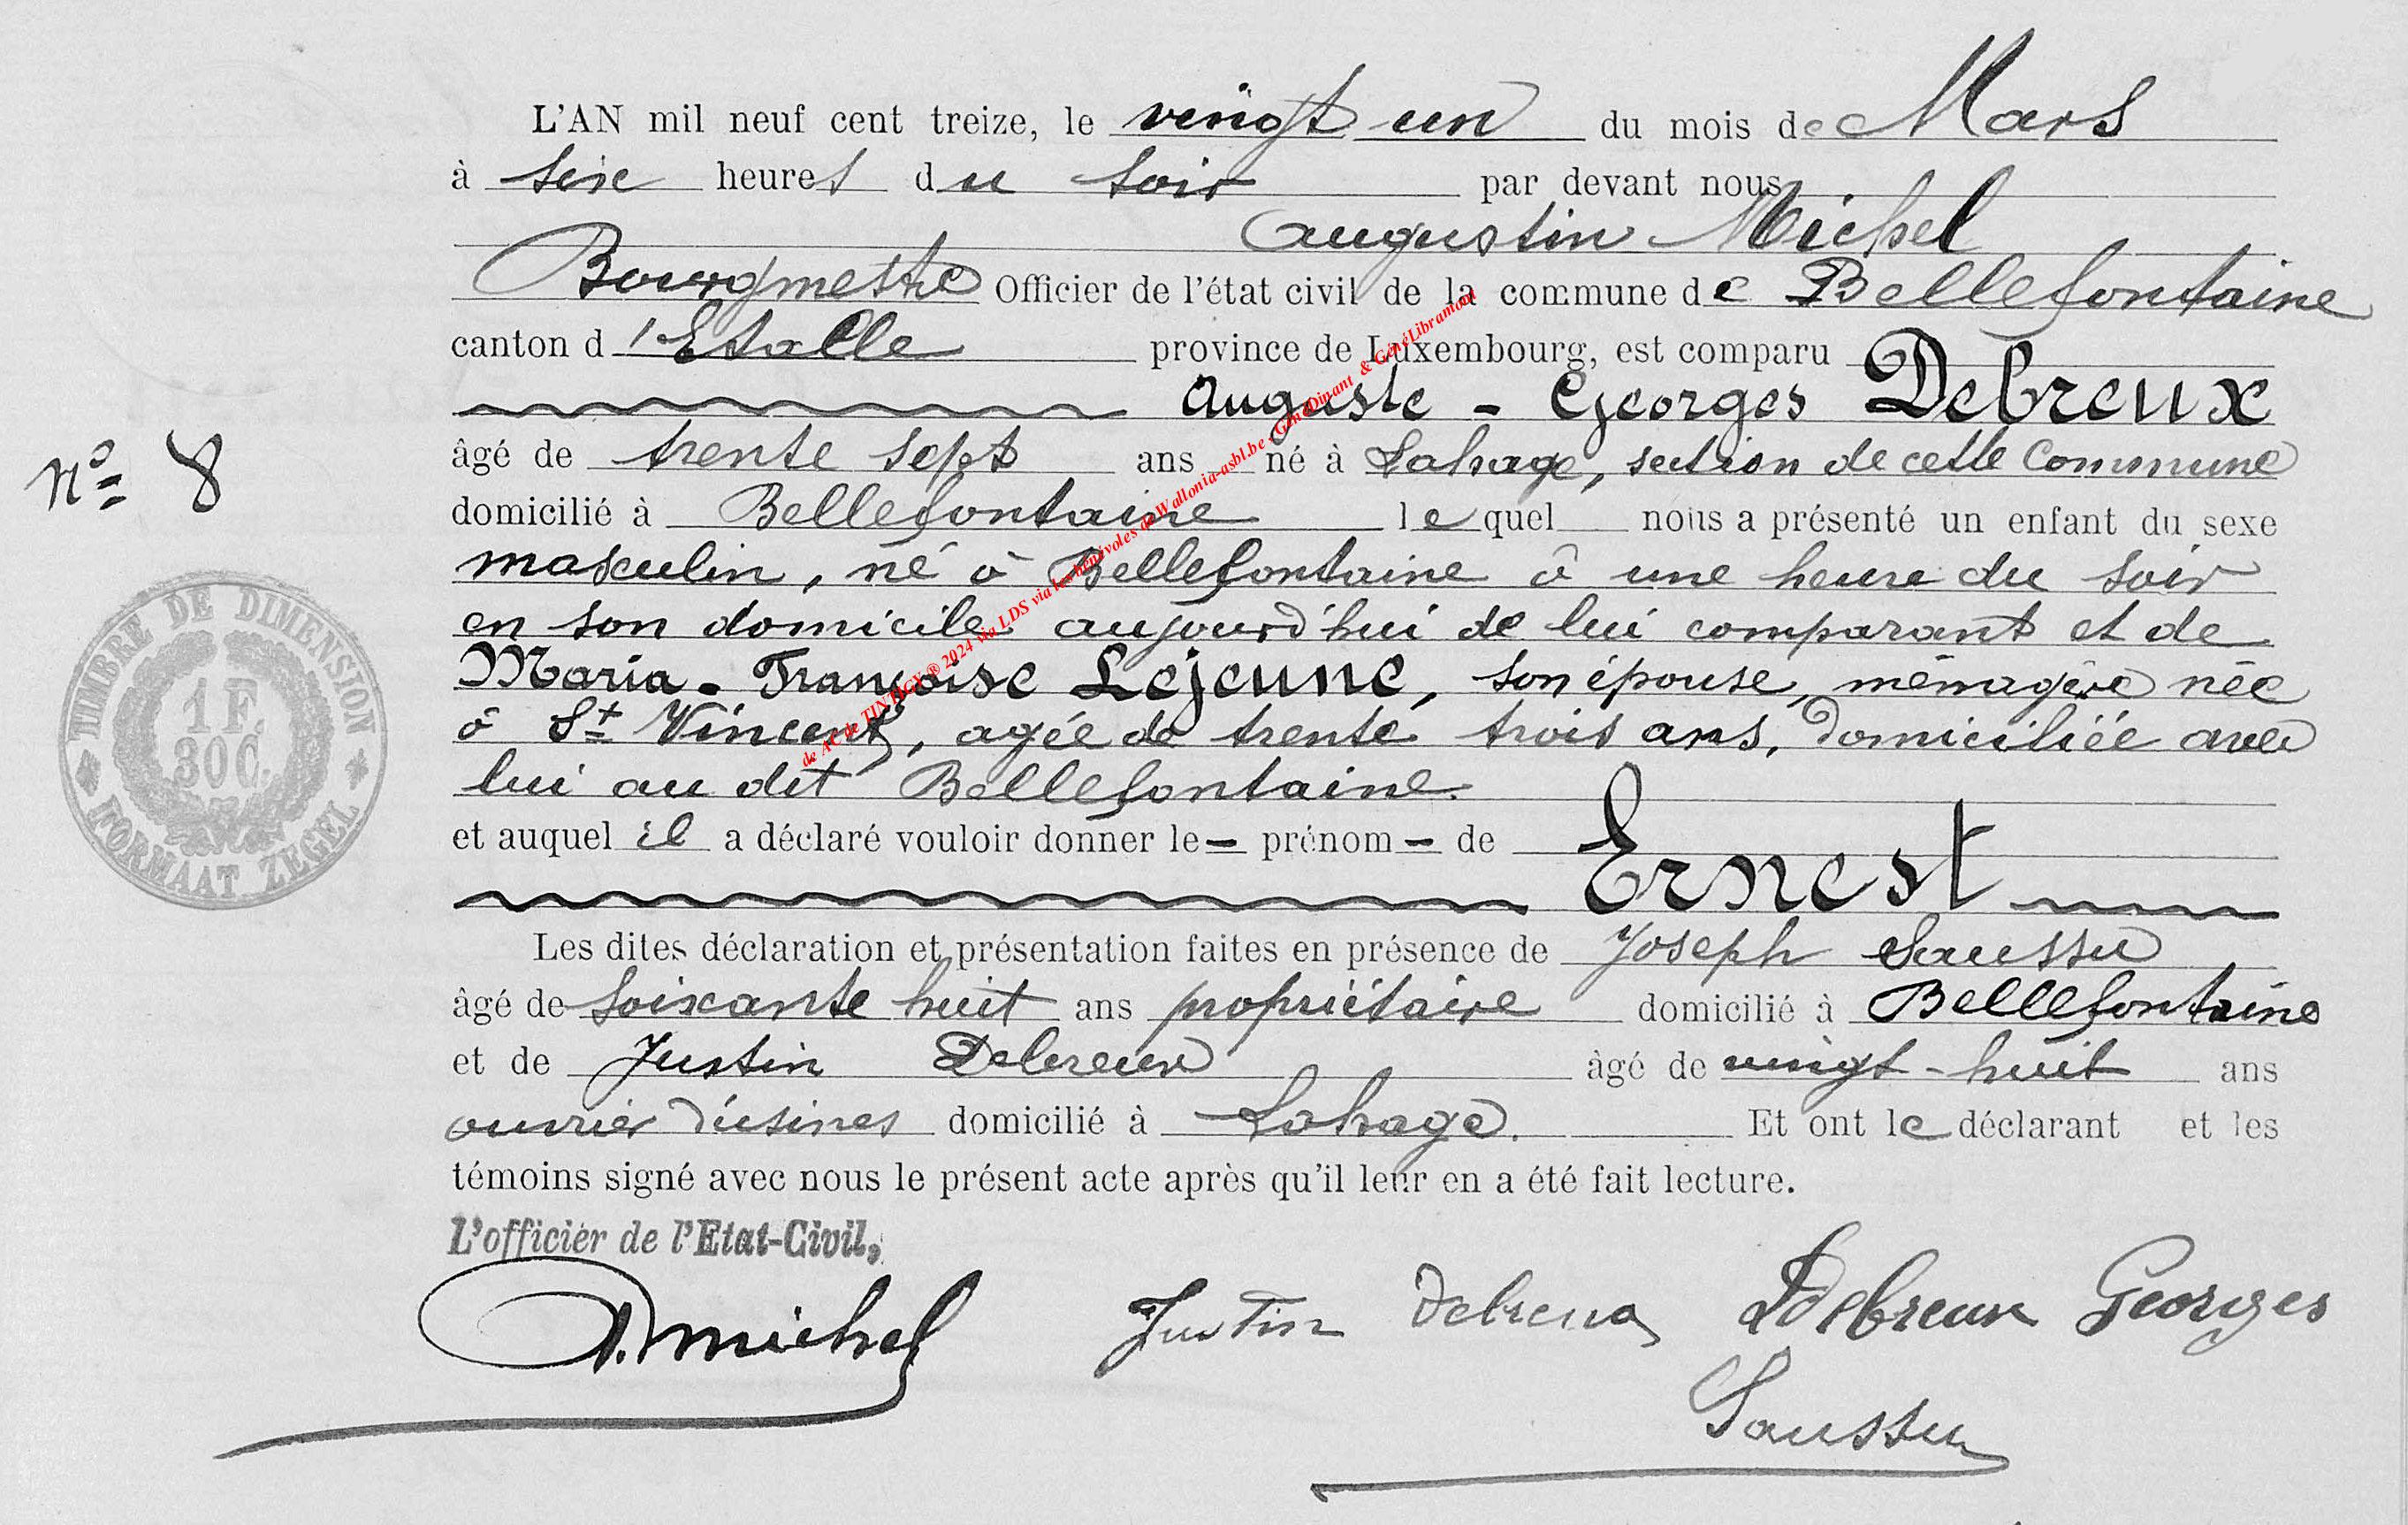 L'AN mil neuf cent treize, le vingt un du mois de Mars
à six heures du soir par devant nous
Augustin Michel
Bourgmestre Officier de l'état civil de la commune de Bellefontaine
canton d'Etalle province de Luxembourg, est comparu
Auguste - Georges Debreux
âgé de trente sept ans né à Lahage, section de cette Commune
N° 8
domicilié à Bellefontaine lequel nous a présenté un enfant du sexe
masculin, né à Bellefontaine à une heure du soir
en son domicile aujourd'hui de lui comparant et de
Maria - Françoise Lejeune, son épouse, ménagère née
à St Vincent, agée de trente trois ans, domiciliée avec
lui au dit Bellefontaine.
et auquel il a déclaré vouloir donner le - prénom - de
Ernest
Les dites déclaration et présentation faites en présence de Joseph Saussu
âgé de soixante huit ans propriétaire domicilié à Bellefontaine
et de Justin Debreux âgé de vingt-huit ans
ouvrier d'usines domicilié à Lahage. Et ont le déclarant et les
témoins signé avec nous le présent acte après qu'il leur en a été fait lecture.
L'officier de l'Etat-Civil,
A. Michel Justin Debreux Debreux Georges
Saussu
TIMBRE DE DIMENSION
1 F.
30 C.
FORMAAT ZEGEL
de AC de TINTIGY ® 2024 via LDS via les bénévoles de Wallonia-asbl.be - GénéDinant & GénéLibramont